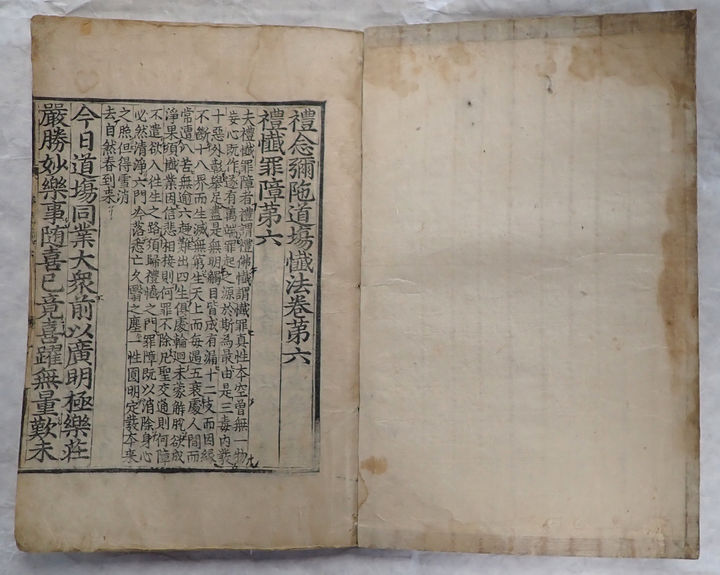 禮念彌陁道塲懺法卷第六
禮懺罪障第六
夫禮懺罪障者禮謂禮佛懺謂懺罪真性本空曾無一物
妄心旣作遂有萬端罪起之源於斯為最由是三毒內發
十惡外彰擧足盡是無明觸目皆成有漏十二支而因緣
不斷十八界而生滅無窮生天上而每遇五衰處人間而
常遭八苦無逾六趣難出四生俱處輪迴未蒙解脫欲取
淨果須懺業因信悲相接則何罪不除凡聖交通則何障
不遣欲入往生之路須歸禮懺之門罪障旣以消除身心
必然清淨六門落亡久翳之塵一性圓明定發本來
之照但得雪消
去自然春到來
今日道塲同業大衆前以廣明極樂莊
嚴勝妙樂事随喜已竟喜躍無量歎未